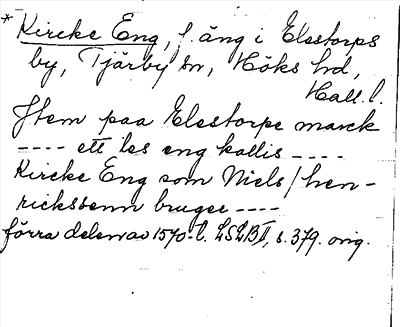 * Kircke Eng, f. äng i Elestorps
by, Tjärby sn, Höks hd,
Hall. l.
Jtem paa Elestorpe marck
---- ett les eng kallis ----
Kircke Eng som Niels / hen-
rickssenn bruger ----
förra delen av 1570-t. LSLB II, s. 379. orig.